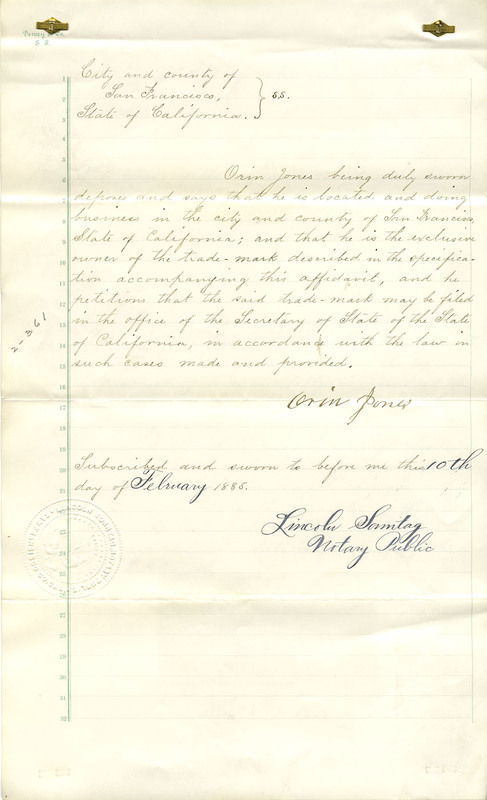 City and county of
San Francisco, } s.s.
State of California.
Orin Jones being duly sworn
deposes and says that he is located and doing
business in the city and county of San Francisco,
State of California; and that he is the exclusive
owner of the trade-mark described in the specifica-
tion accompanying this affidavit, and he
petitions that the said trade-mark may be filed
in the office of the Secretary of State of the State
of California, in accordance with the law in
such cases made and provided.
2-361
Orin Jones
Subscribed and sworn to before me this 10th
day of February 1885.
Lincoln Sonntag
Notary Public